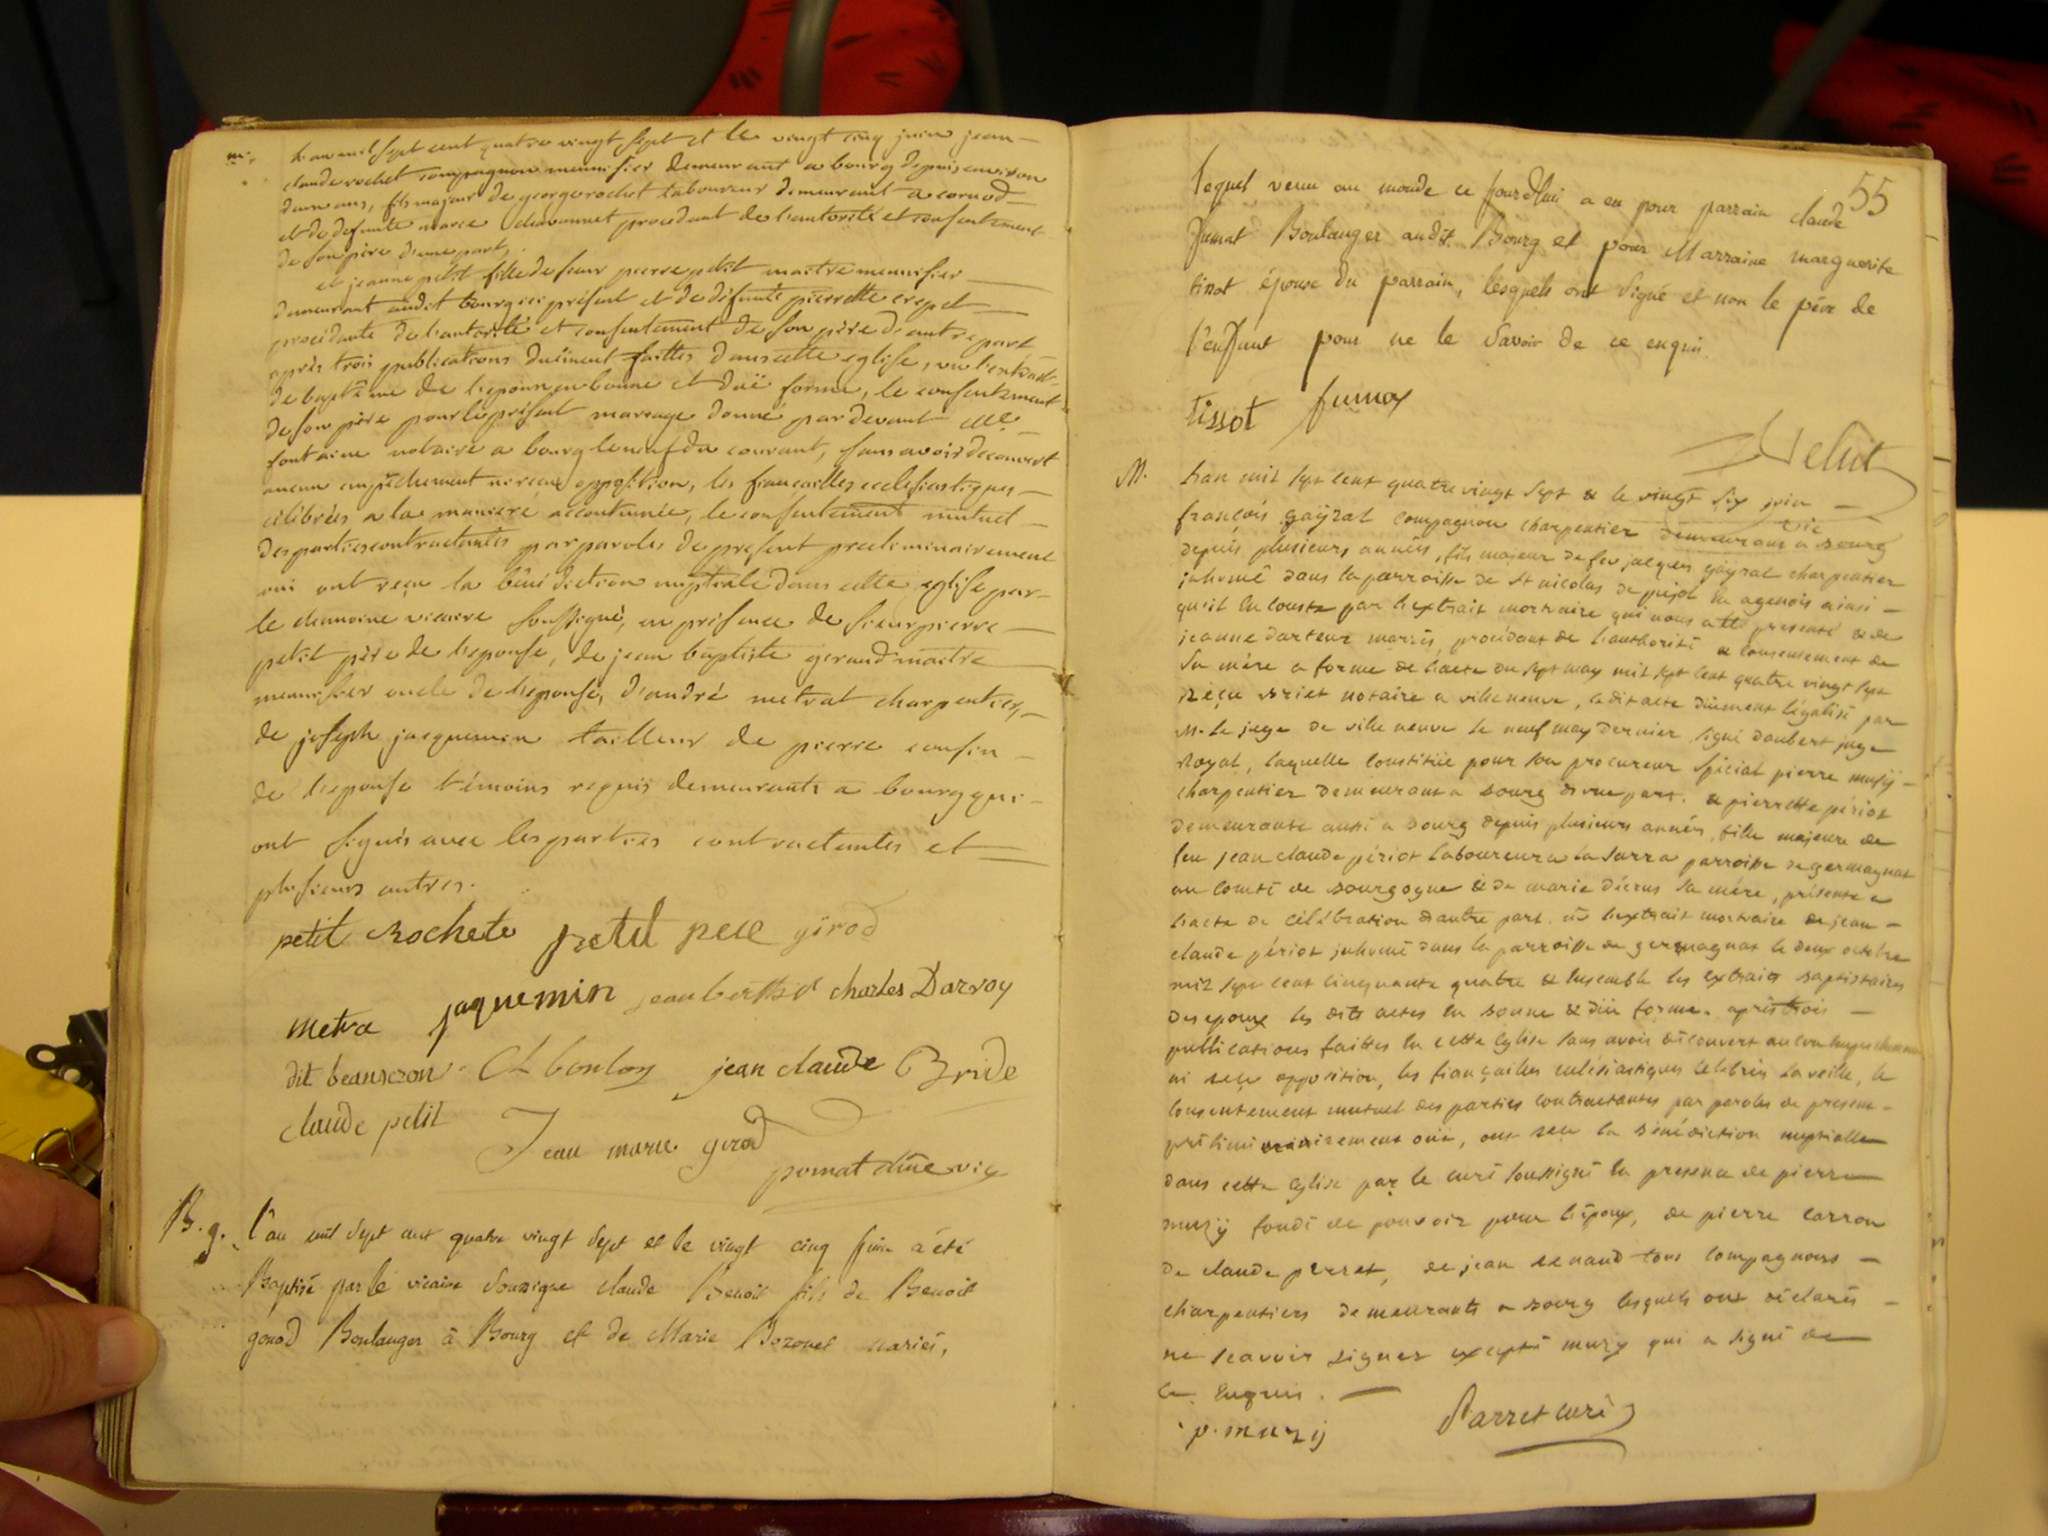 m.
L'an mil sept cent quatre vingt sept et le vingt cinq juin jean
claude rochet compagnon mennisier demeurant a bourg depuis environ
deux ans, fils majeur de george rochet laboureur demeurant a cornod
et de defunte marie chavannet procedant de l'autorité et consentement
de son père d'une part,
et jeanne petit fille de sieur pierre petit maitre mennisier
demeurant audit bourg ici présent et de défunte pierrette crepet
procédante de l'autorité et consentement de son père d'autre part
après trois publications duëment faittes dans cette eglise, vu l'extrait
de baptême de l'epoux en bonne et duë forme, le consentement
de son père pour le présent mariage donné par devant me
fontaine notaire a bourg le neuf du courant, sans avoir decouvert
aucun empêchement ni reçu opposition, les fiançailles ecclesiastiques
célébrées a la maniere accoutumée, le consentement mutuel
des parties contractantes par paroles de present preliminairement
oui ont reçu la bénédiction nuptiale dans cette eglise par
le chanoine vicaire soussigné, en présence de sieur pierre
petit père de l'epouse, de jean baptiste geraud maitre
mennisier oncle de l'epouse, d'andré metrat charpentier,
de joseph jacquemin tailleur de pierre cousin
de l'epouse témoins requis demeurants a bourg qui
ont signés avec les parties contractantes et
plusieurs autres.
petit Rochete petit pere girod
metra jaquemin jean charles Darvoy
dit beansczon jean claude Bride
claude petit
Jean marie girod
pomat vic
B. g. L'an mil sept cent quatre vingt sept et le vingt cinq juin a été
Baptisé par le vicaire soussigné claude Benoit fils de Benoit
gonod Boulanger à Bourg et de Marie Bozonet mariés,
55
lequel venu au monde ce jourd'hui a eu pour parrain claude
fumat Boulanger audit Bourg et pour Marraine marguerite
tissot épouse du parrain, lesquels ont signé et non le père de
l'enfant pour ne le savoir de ce enquis.
tissot fumax
Velut
M. L'an mil sept cent quatre vingt sept & le vingt six juin
françois gayral compagnon charpentier demeurant a bourg
depuis plusieurs années, fils majeur de feu jacques gayral charpentier
inhumé dans la parroisse de St nicolas de pujol en agenois ainsi
qu'il en conste par l'extrait mortuaire qui nous a été presenté & de
jeanne darteur mariés, procédant de l'authorité & consentement de
sa mère a forme de l'acte du sept may mil sept cent quatre vingt sept
Reçu briet notaire a villeneuve, ledit acte duement légalisé par
M. le juge de ville neuve le neuf may dernier signé daubert juge
Royal, laquelle constitüe pour son procureur spécial pierre muzij
charpentier demeurant a bourg d'une part. & pierrette périot
demeurante aussi a bourg depuis plusieurs années, fille majeure de
feu jean claude périot laboureur a la sarra parroisse de germagnat
au comté de bourgogne & de marie sa mère, présente a
l'acte de célébration d'autre part. vû l'extrait mortuaire de jean
claude périot inhumé dans la parroisse de germagnat le deux octobre
mil sept cent cinquante quatre & ensemble les extraits baptistaires
des epoux les dits actes en bonne & düe forme. après trois
publications faittes en cette Eglise sans avoir découvert aucun empechement
ni reçu opposition, les fiançailles eclésiastiques célébrées la veille, le
consentement mutuel des parties contractantes par paroles de present
préliminairement oui, ont reçu la bénédiction nuptialle
dans cette Eglise par le curé soussigné en presence de pierre
muzij fondé de pouvoir pour l'époux, de pierre carron
de claude perret, de jean renaud tous compagnons
charpentiers demeurants a bourg lesquels ont déclarés
ne scavoir signer excepté muzy qui a signé de
ce enquis.
p. muzij Parret curé